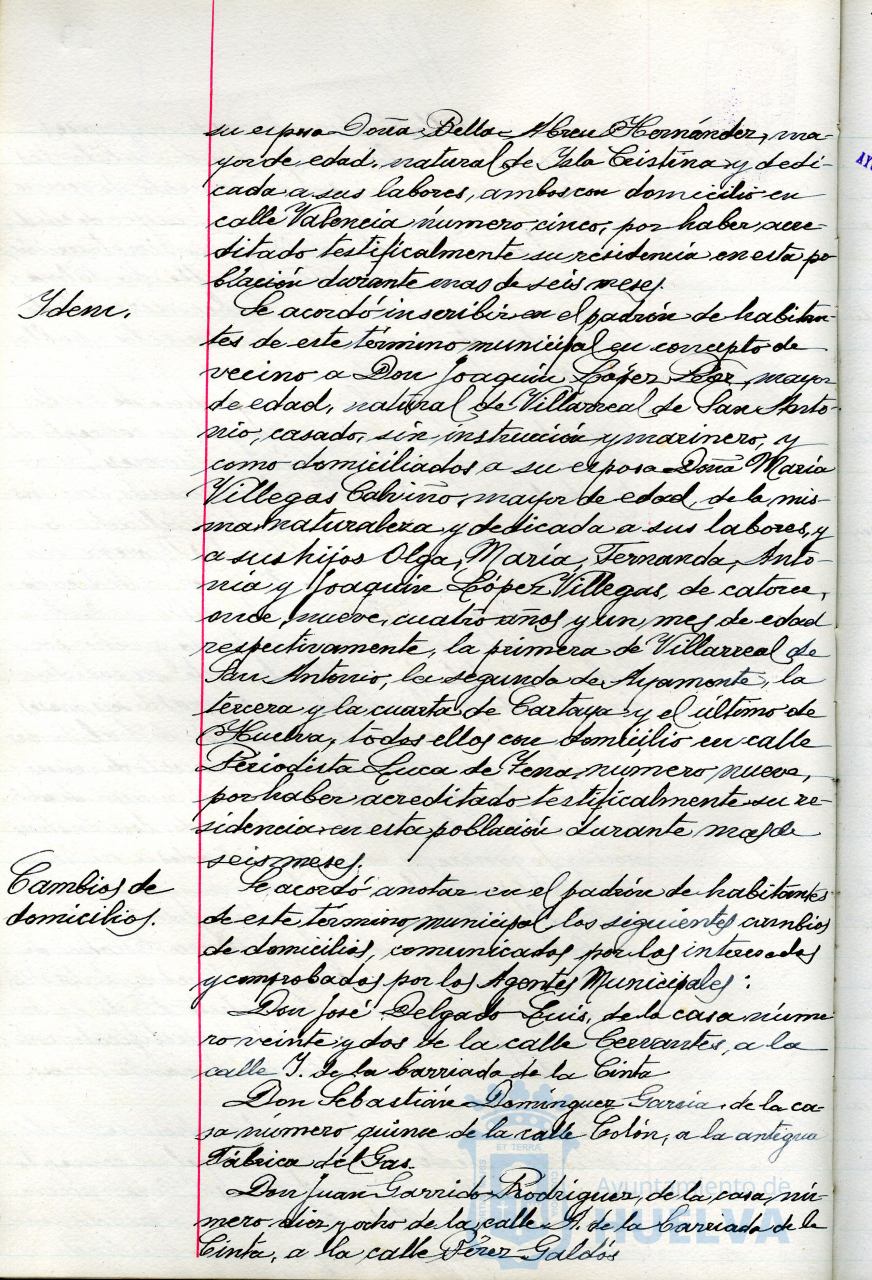 su esposa Doña Bella Abreu Hernández, ma-
yor de edad, natural de Isla Cristina y dedi-
cada a sus labores, ambos con domicilio en
calle Valencia número cinco, por haber acre-
ditado testificalmente su residencia en esta po
blación durante mas de seis meses.
Idem.
Se acordó inscribir en el padrón de habitan-
tes de este término municipal en concepto de
vecino a Don Joaquín López Pérez, mayor
de edad, natural de Villarreal de San Anto-
nio, casado, sin instrucción y marinero, y
como domiciliados a su esposa Doña María
Villegas Calviño, mayor de edad, de la mis-
ma naturaleza y dedicada a sus labores, y
a sus hijos Olga, María, Fernanda, Anto-
nia y Joaquín López Villegas, de catorce,
once, nueve, cuatro años y un mes de edad
respectivamente, la primera de Villarreal de
San Antonio, la segunda de Ayamonte, la
tercera y la cuarta de Cartaya y el último de
Huelva, todos ellos con domicilio en calle
Periodista Luca de Tena, número nueve,
por haber acreditado testificalmente su re-
sidencia en esta población durante mas de
seis meses.
Cambios de
domicilios.
Se acordó anotar en el padrón de habitantes
de este término municipal los siguientes cambios
de domicilios, comunicados por los interesados
y comprobados por los Agentes Municipales:
Don José Delgado Luis, de la casa núme
ro veinte y dos de la calle Cervantes, a la
calle J. de la barriada de la Cinta
Don Sebastián Domínguez García, de la ca-
sa número quince de la calle Colón, a la antigua
Fábrica del Gas.
Don Juan Garrido Rodríguez, de la casa nú-
mero diez y ocho de la calle A. de la barriada de la
Cinta, a la calle Pérez Galdós
Ayuntamiento de
HUELVA